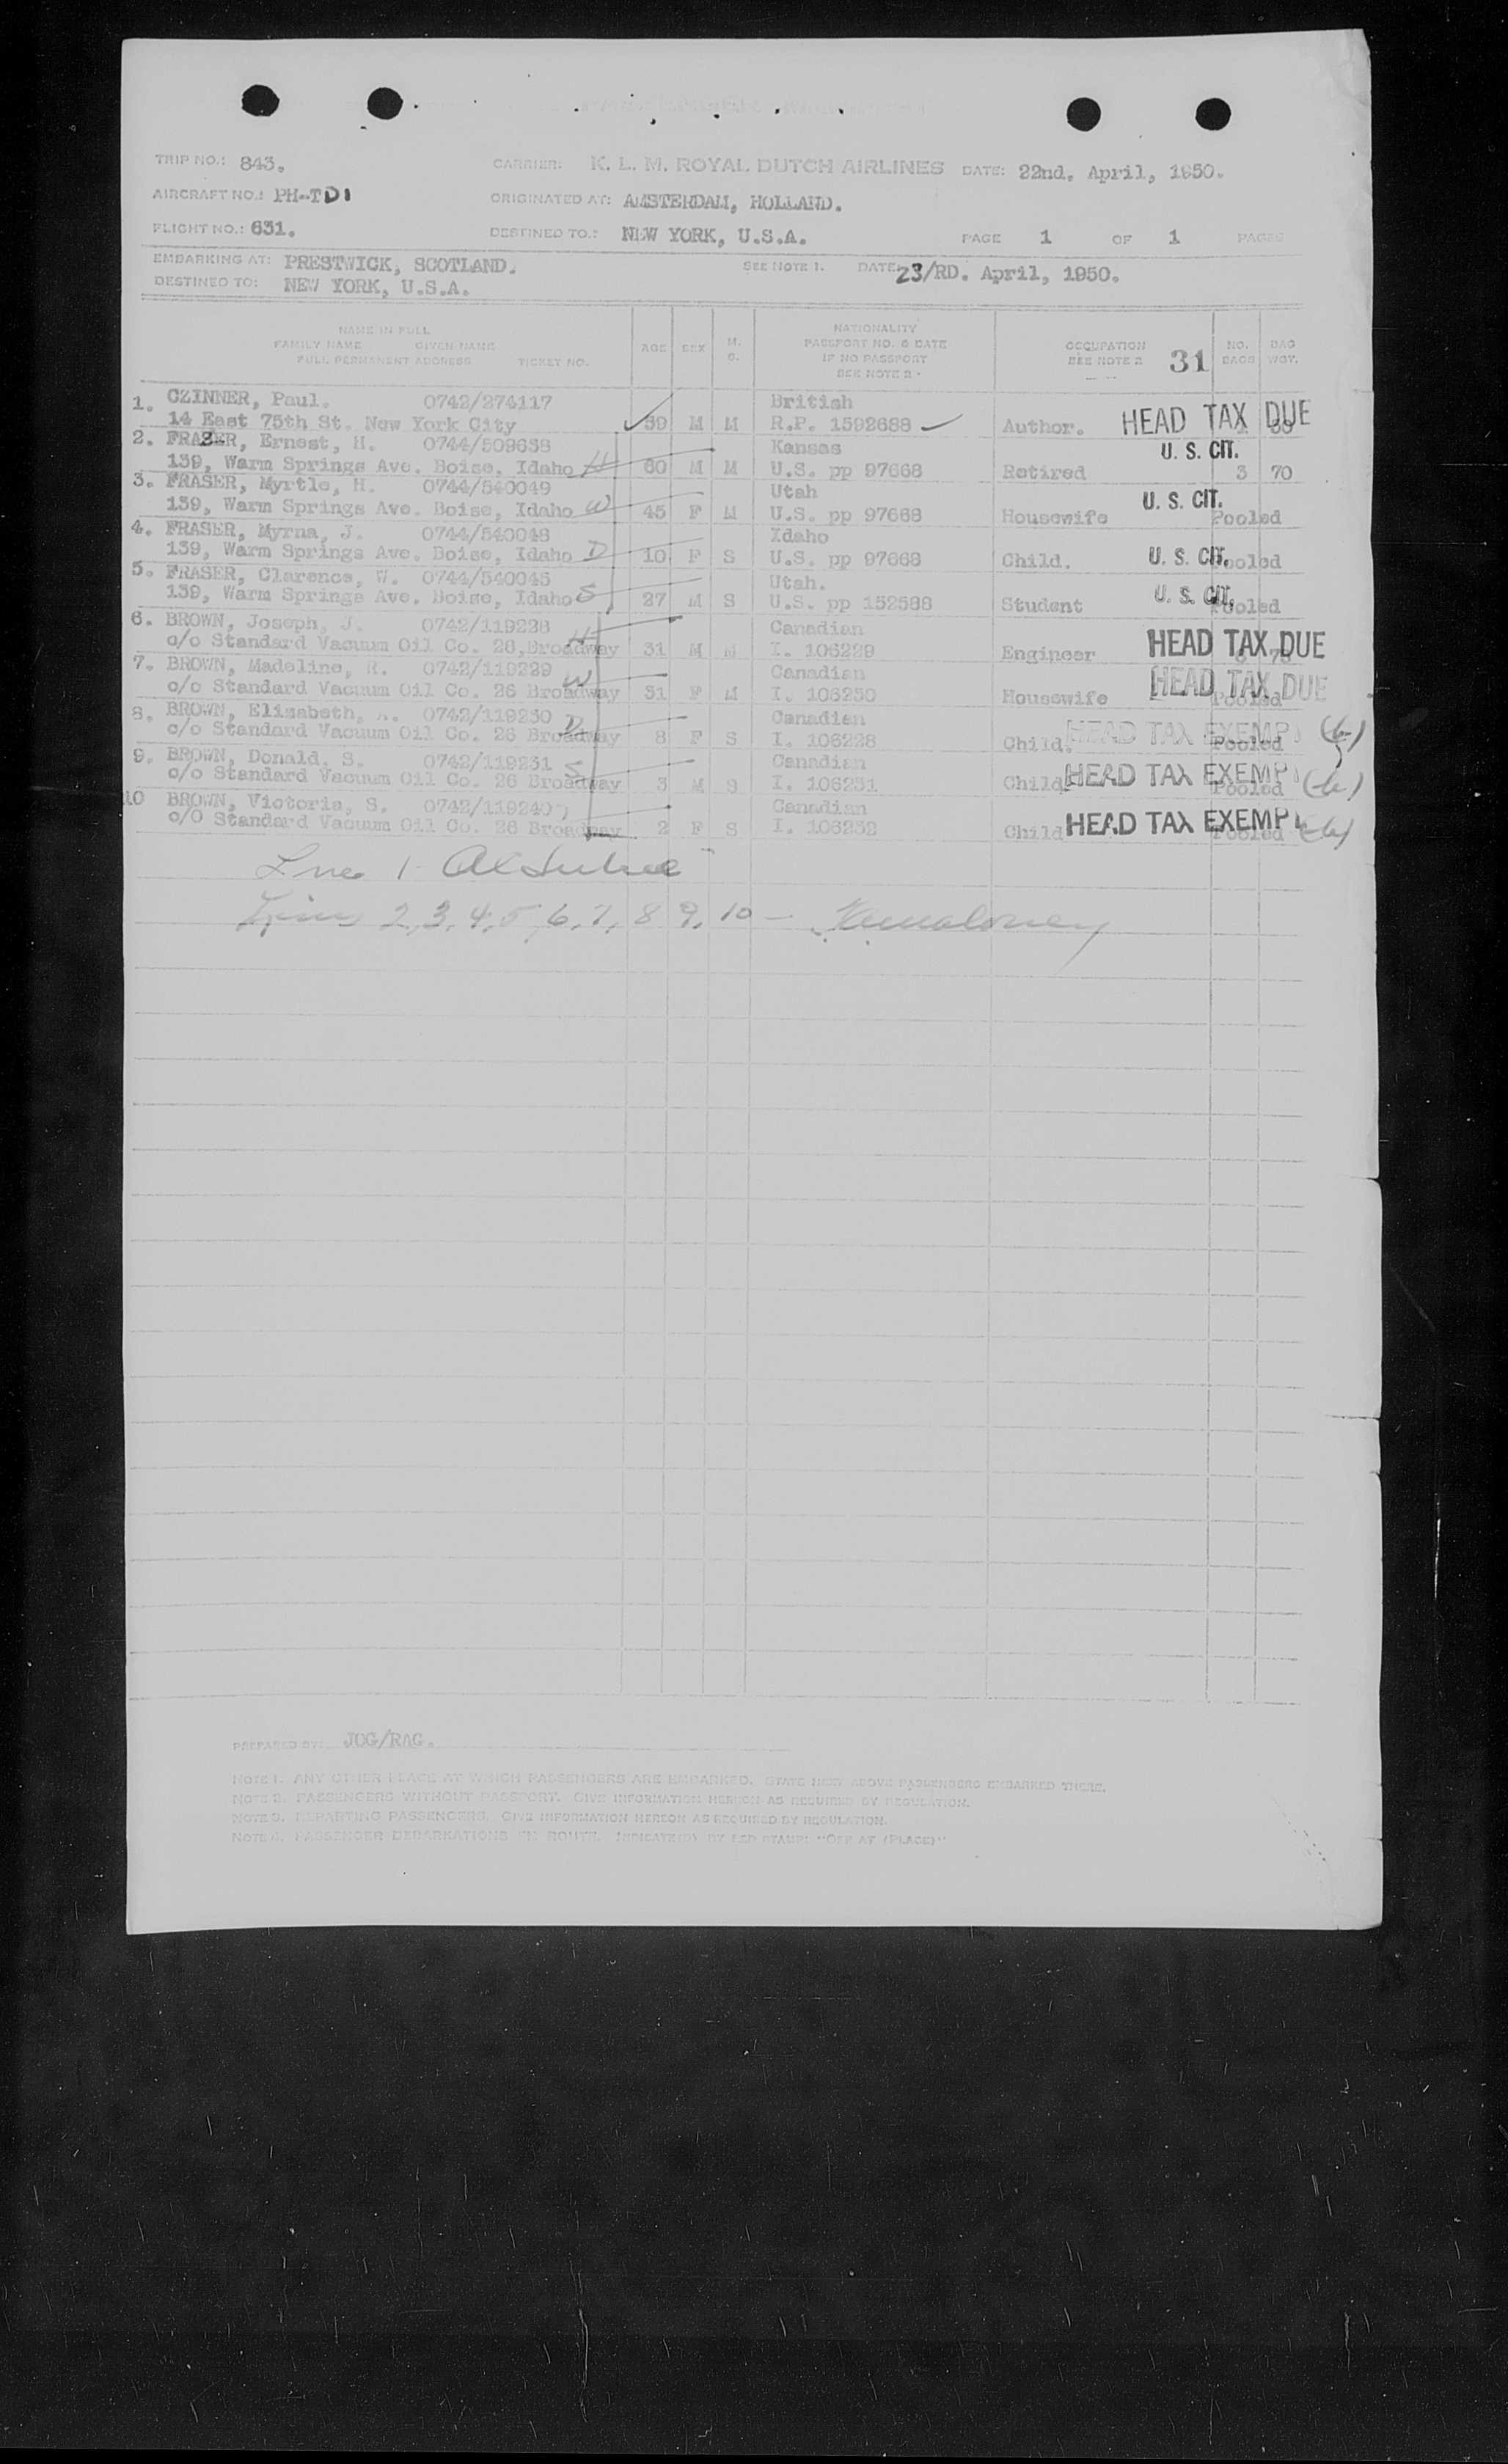 TRIP NO.: 843. CARRIER: K. L. M. ROYAL DUTCH AIRLINES DATE: 22nd. April, 1950.
AIRCRAFT NO.: PH-TDI ORIGINATED AT: AMSTERDAM, HOLLAND.
FLIGHT NO.: 631. DESTINED TO.: NEW YORK, U.S.A. PAGE 1 OF 1 PAGES
EMBARKING AT: PRESTWICK, SCOTLAND. SEE NOTE 1. DATE: 23/RD. April, 1950.
DESTINED TO: NEW YORK, U.S.A.
NAME IN FULL
FAMILY NAME GIVEN NAME
FULL PERMANENT ADDRESS TICKET NO.
AGE SEX M. S.
NATIONALITY
PASSPORT NO. & DATE
IF NO PASSPORT
SEE NOTE 2
OCCUPATION
SEE NOTE 2 31
NO. BAGS BAG WGT.
1. CZINNER, Paul. 0742/274117 British
14 East 75th St. New York City 59 M M R.P. 1592688 Author. HEAD TAX DUE
2. FRASER, Ernest, H. 0744/509658 Kansas U. S. CIT.
139, Warm Springs Ave. Boise, Idaho H 60 M M U.S. pp 97668 Retired 3 70
3. FRASER, Myrtle, H. 0744/540049 Utah U. S. CIT.
139, Warm Springs Ave. Boise, Idaho W 45 F M U.S. pp 97668 Housewife Pooled
4. FRASER, Myrna, J. 0744/540048 Idaho
139, Warm Springs Ave. Boise, Idaho D 10 F S U.S. pp 97668 Child. U. S. CIT. Pooled
5. FRASER, Clarence, W. 0744/540046 Utah.
139, Warm Springs Ave. Boise, Idaho S 27 M S U.S. pp 152588 Student U. S. CIT. Pooled
6. BROWN, Joseph, J. 0742/119228 H Canadian
c/o Standard Vacuum Oil Co. 26,Broadway 31 M M I. 106229 Engineer HEAD TAX DUE
7. BROWN, Madeline, R. 0742/119229 W Canadian
c/o Standard Vacuum Oil Co. 26 Broadway 31 F M I. 106230 Housewife HEAD TAX DUE Pooled
8. BROWN, Elizabeth, 0742/119230 D Canadian
c/o Standard Vacuum Oil Co. 26 Broadway 8 F S I. 106228 Child. HEAD TAX EXEMPT Pooled
9. BROWN, Donald, S. 0742/119231 S Canadian
c/o Standard Vacuum Oil Co. 26 Broadway 3 M S I. 106231 Child HEAD TAX EXEMPT Pooled
10 BROWN, Victoria, S. 0742/119240 Canadian
c/o Standard Vacuum Oil Co. 26 Broadway 2 F S I. 106232 Child HEAD TAX EXEMPT Pooled
Line 1
Lines 2,3,4,5,6,7,8 9,10 -
PREPARED BY: JCG/RAG.
NOTE 1. ANY OTHER PLACE AT WHICH PASSENGERS ARE EMBARKED. STATE NEXT ABOVE PASSENGERS EMBARKED THERE.
NOTE 2. PASSENGERS WITHOUT PASSPORT. GIVE INFORMATION HEREON AS REQUIRED BY REGULATION.
NOTE 3. DEPARTING PASSENGERS. GIVE INFORMATION HEREON AS REQUIRED BY REGULATION.
NOTE 4. PASSENGER DEBARKATIONS EN ROUTE. INDICATE(D) BY RED STAMP: "OFF AT (PLACE)"